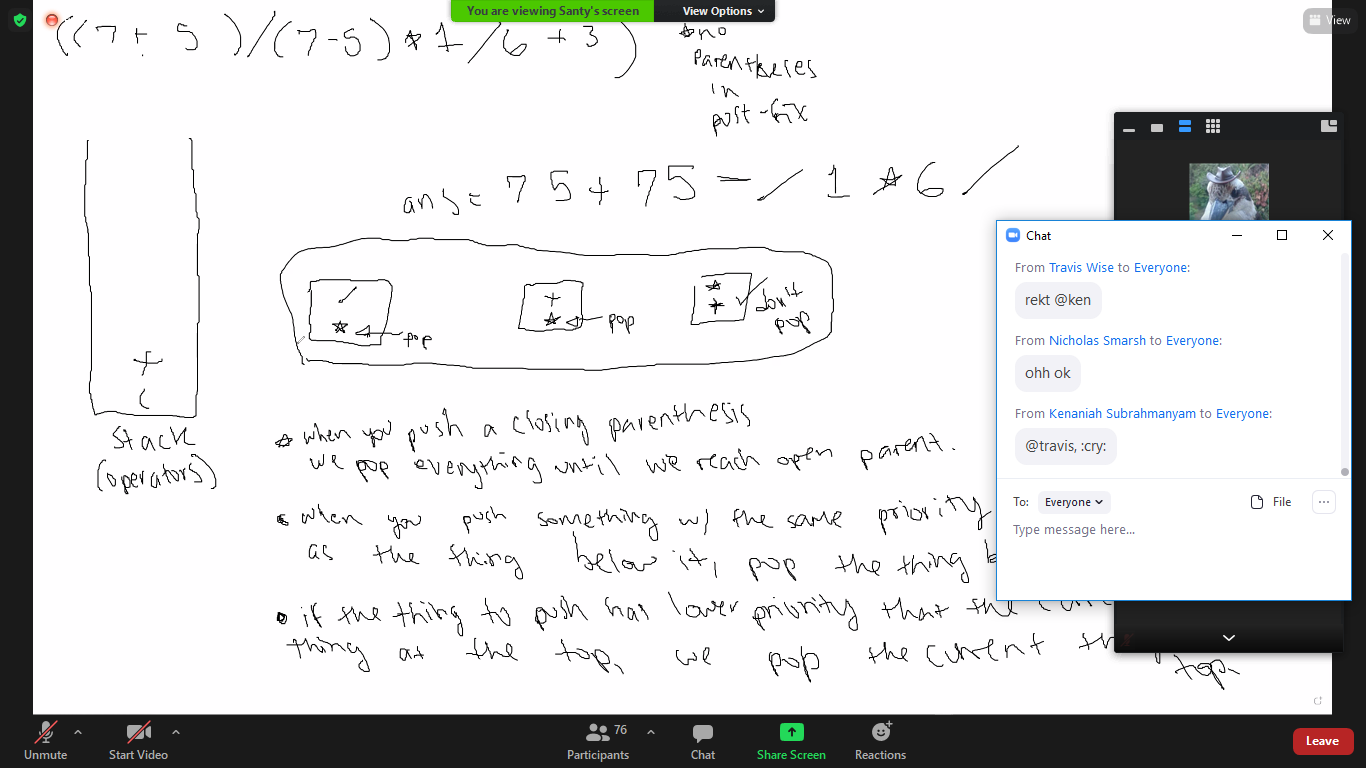 You are viewing Santy's screen
View Options
View
((7 + 5 )/(7-5) * 1 / 6 + 3 )
* no
parentheses
in
post-fix
ans = 7 5 + 7 5 - / 1 * 6 /
/
* pop
+
* pop
*
+ don't
pop
+
(
stack
(operators)
* when you push a closing parenthesis
we pop everything until we reach open parent.
when you push something w/ the same priority
as the thing below it, pop the thing
if the thing to push has lower priority that the
thing at the top, we pop the current
top.
Chat
From Travis Wise to Everyone:
rekt @ken
From Nicholas Smarsh to Everyone:
ohh ok
From Kenaniah Subrahmanyam to Everyone:
@travis, :cry:
To: Everyone
File
Type message here...
Unmute
Start Video
76
Participants
Chat
Share Screen
Reactions
Leave